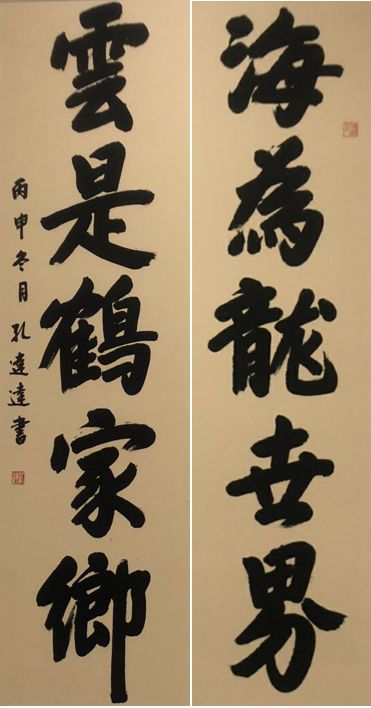 海為龍世界
雲是鶴家鄉
丙申冬月孔達達書